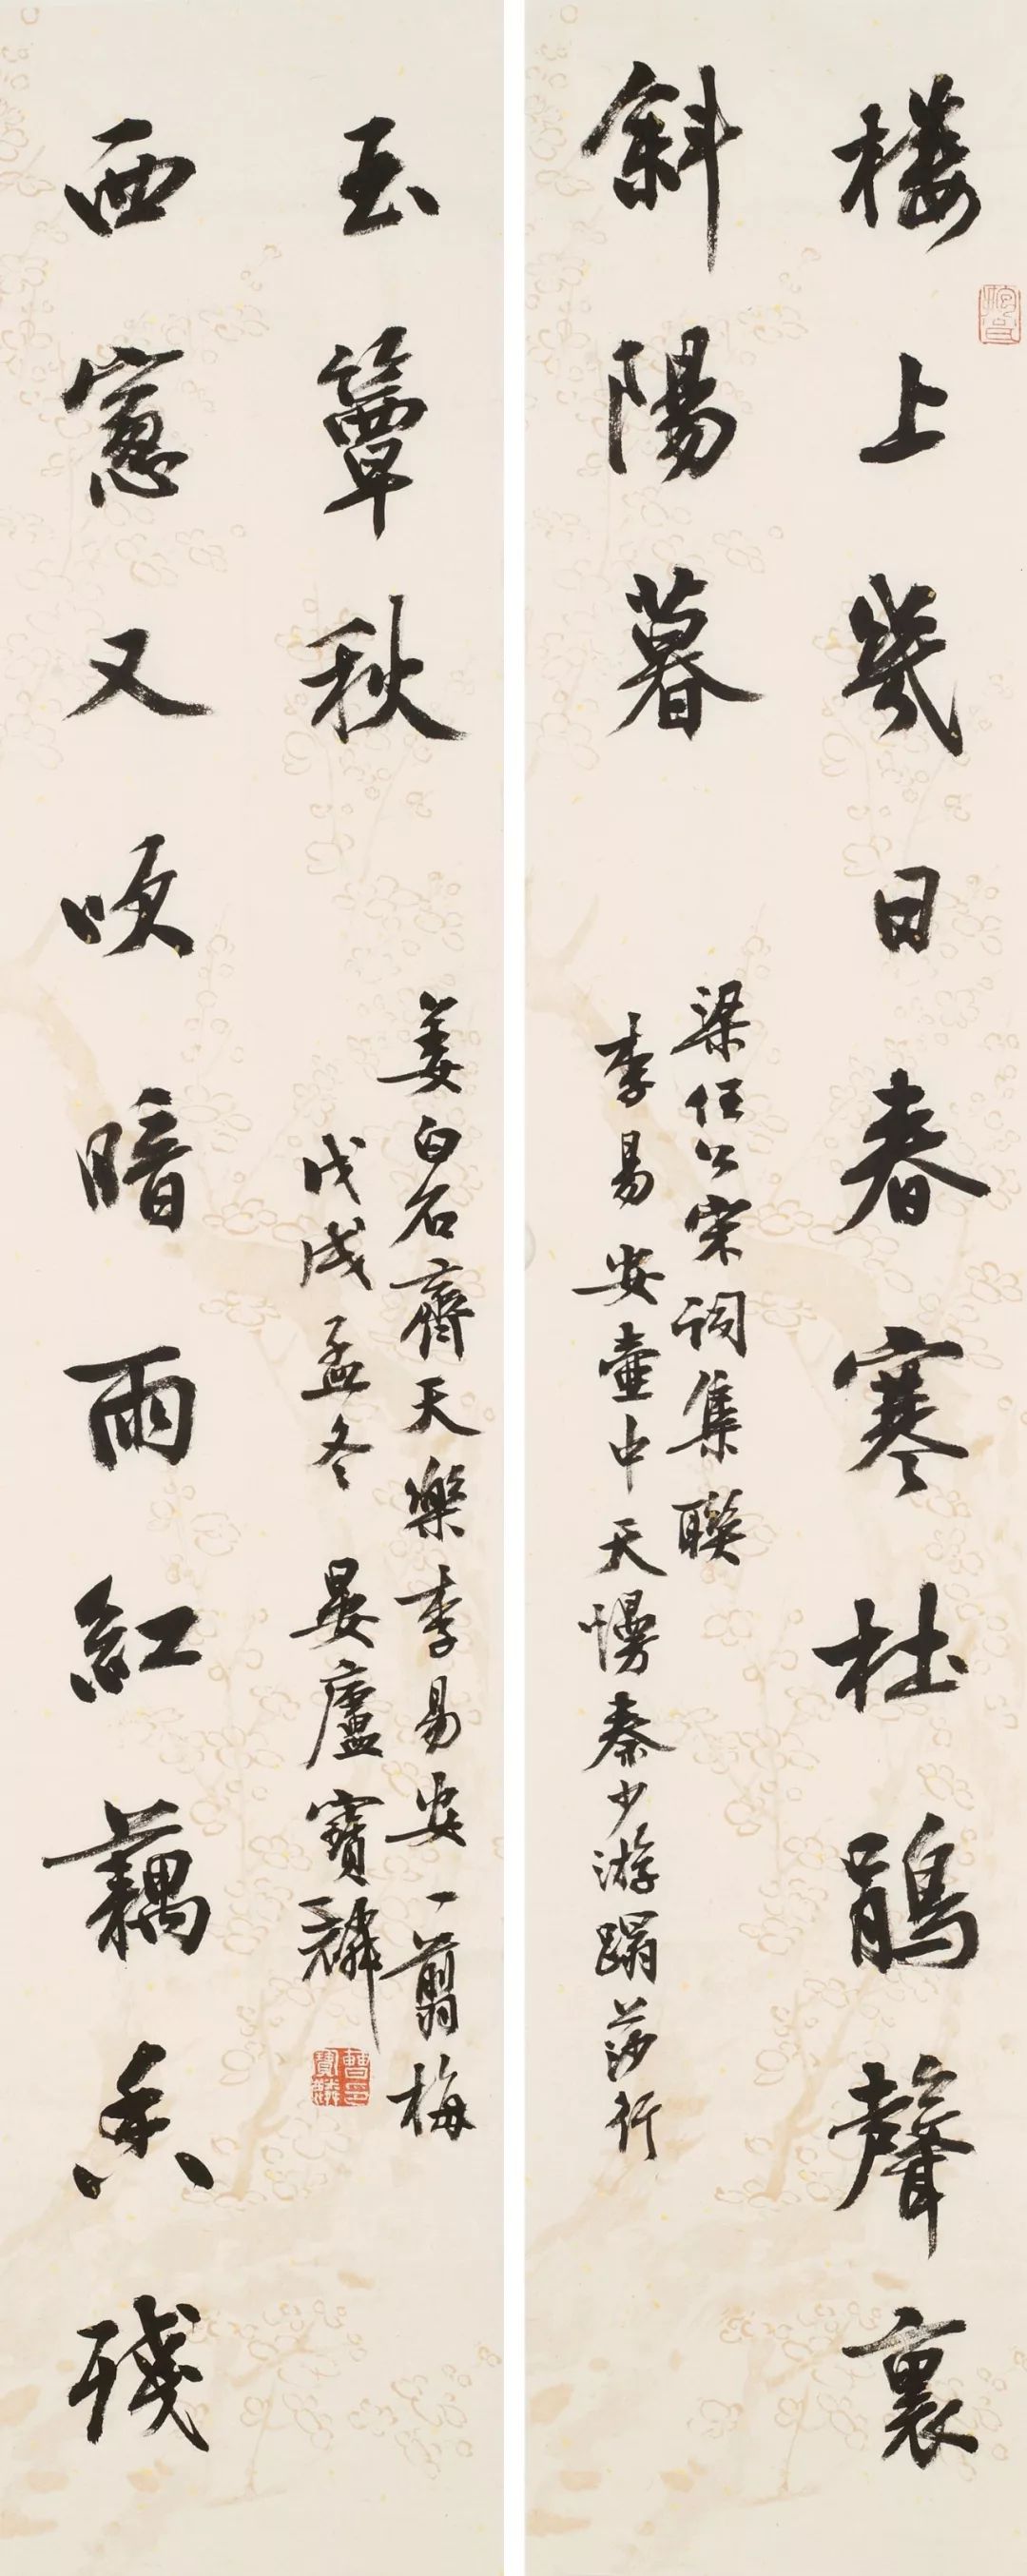 樓上幾日春寒杜鵑聲裏
斜陽暮
梁任公宋詞集聯
李易安壺中天慢秦少游蹋莎行
西窻又吹暗雨紅藕香殘
玉簟秋
姜白石齊天樂李易安一翦梅
戊戌孟冬 晏廬寶麟
曹寶麟印